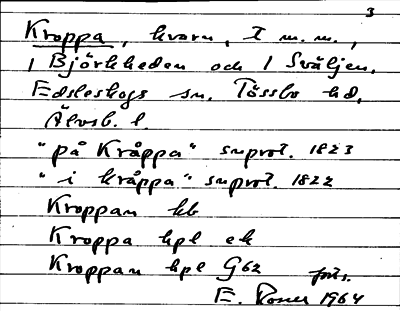 3
Kroppa, kvarn, I m.m.,
1 Björkheden och 1 Sväljen,
Edsleskogs sn. Tössbo hd,
Älvsb. l.
"på Kråppa" snprot. 1823
"i kråppa" snprot. 1822
Kroppan kb
Kroppa hpl ek
Kroppan hpl G62
E. 1964